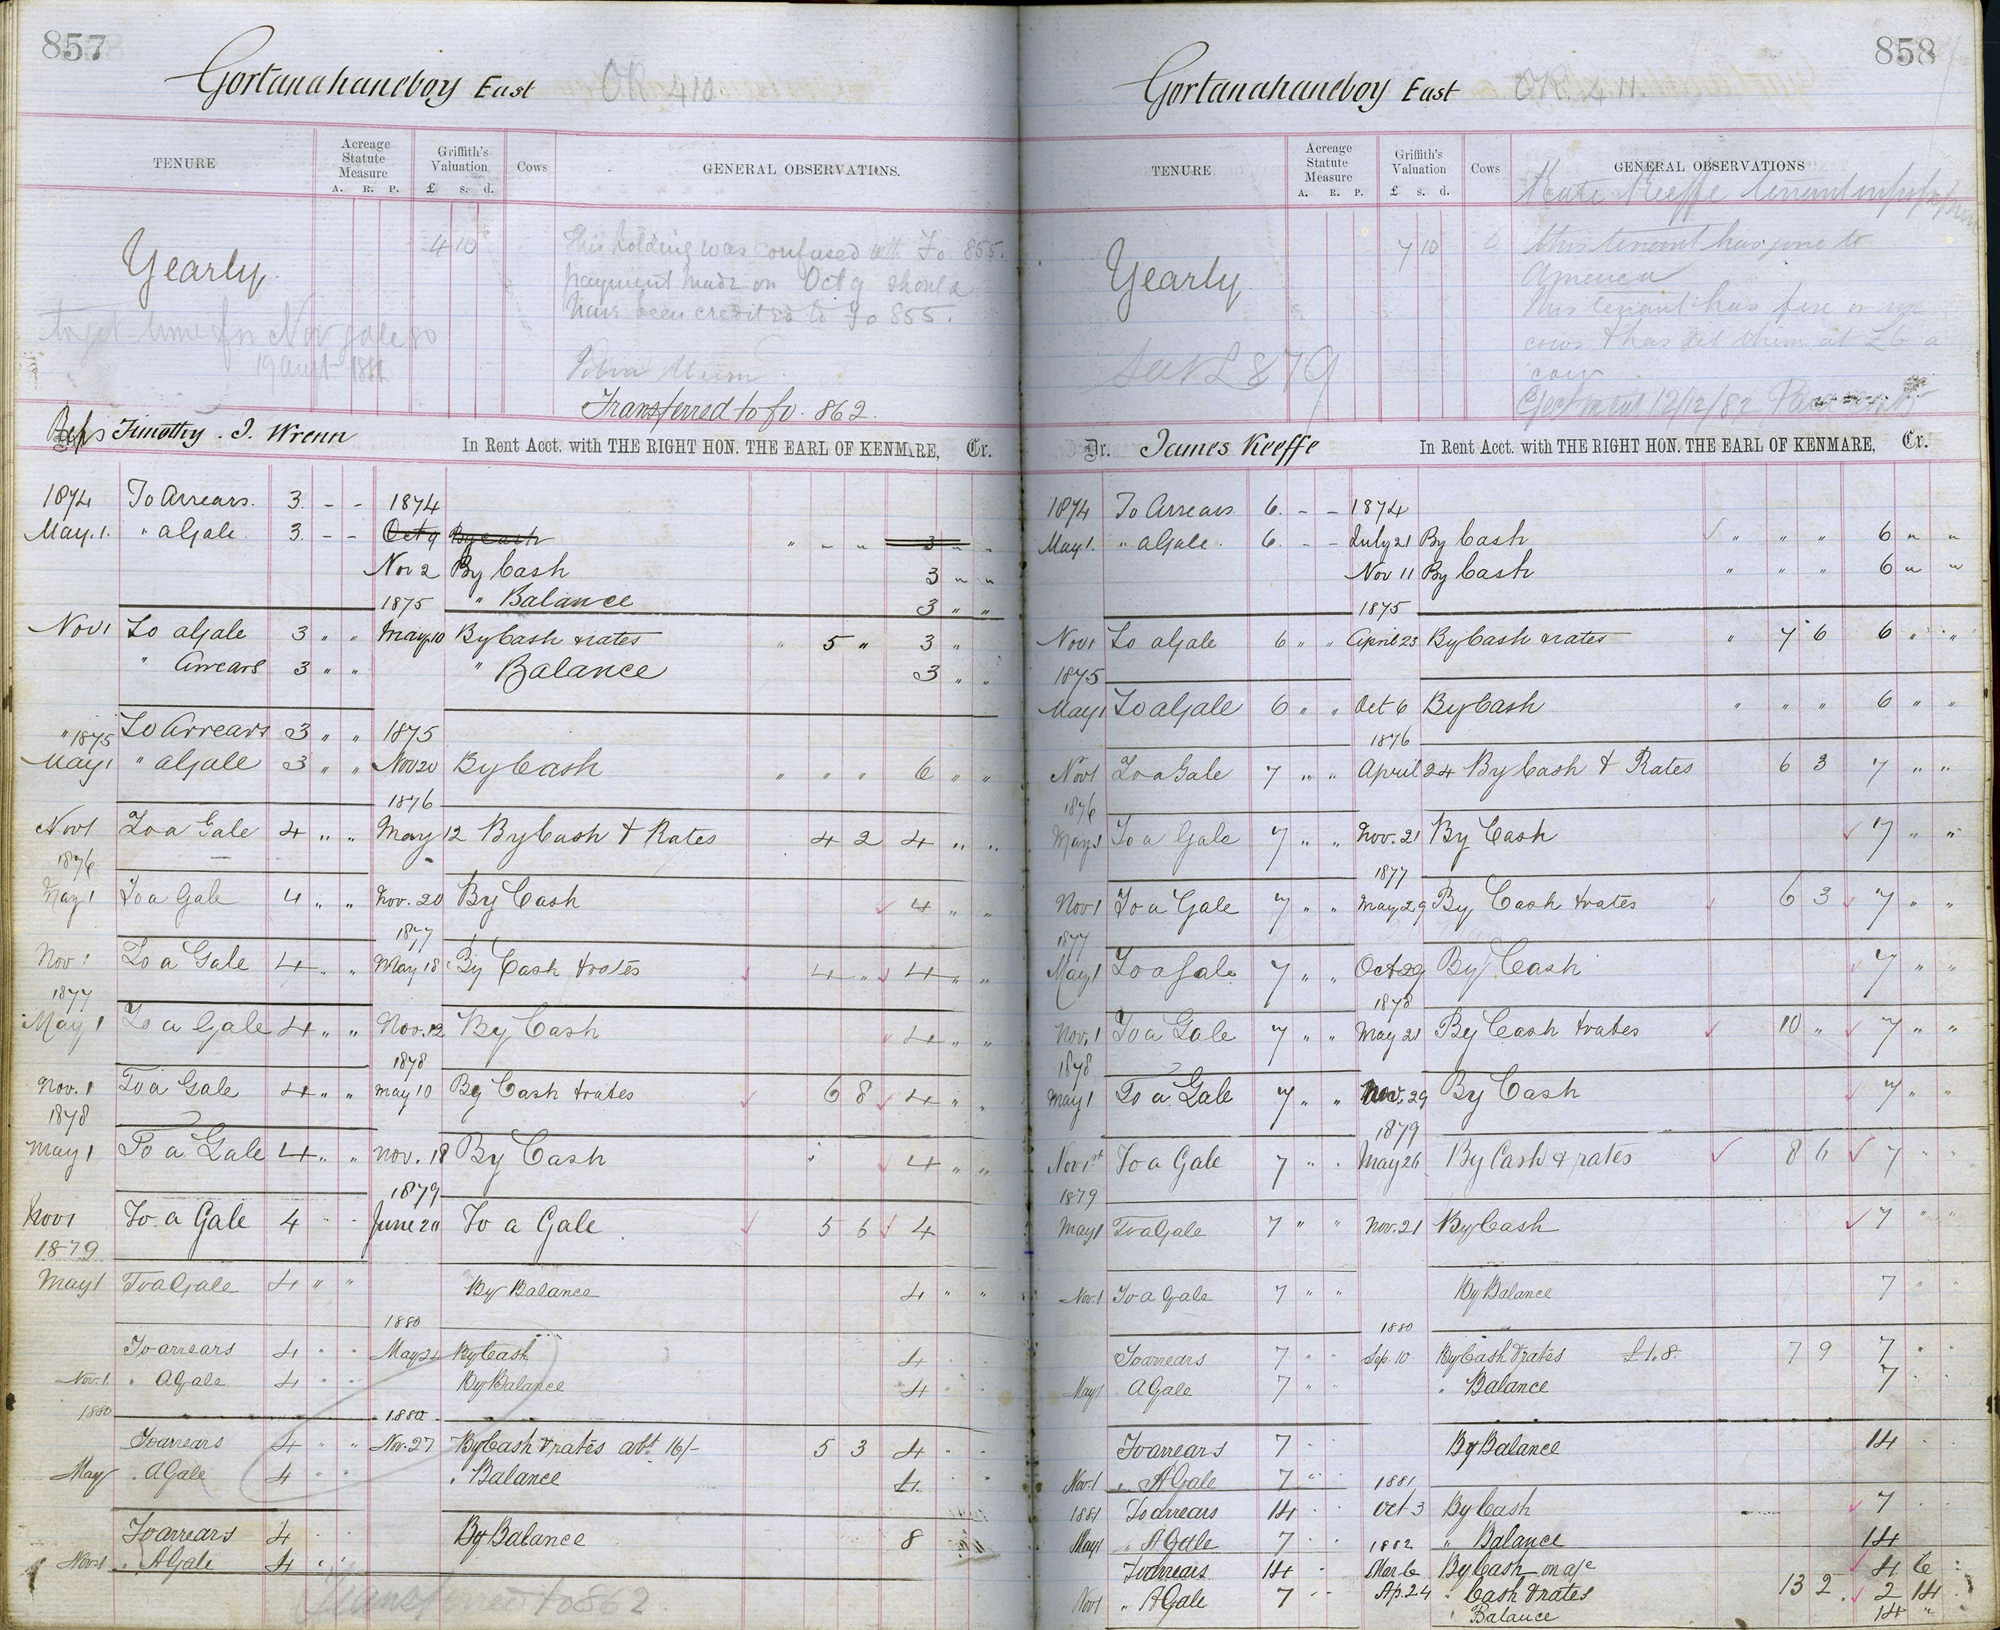 857
Gortanahaneboy East OR 410
TENURE
Acreage Statute Measure
A. R. P.
Griffith's Valuation
£ s. d.
Cows
GENERAL OBSERVATIONS.
Yearly
4 10
This holding was confused with Fo 855.
payment made on Oct 9 should
have been credited to Fo 855.
for Nov gale 80
19 augt 1881
Transferred to fo. 862.
Reps Timothy . J. Wrenn In Rent Acct. with THE RIGHT HON. THE EARL OF KENMARE, Cr.
1874 To Arrears. 3. - - 1874
May. 1. " a Gale 3. - - Oct 9 By Cash " " " 3 " "
Nov 2 By Cash 3 " "
1875 " Balance 3 " "
Nov 1 To a Gale 3 " " May 10 By Cash & rates " 5 " 3 "
" Arrears 3 " " " Balance 3 " "
" 1875 To Arrears 3 " " 1875
May 1 " a Gale 3 " " Nov 20 By Cash " " " 6 " "
1876
Nov 1 To a Gale 4 " " May 12 By Cash & Rates 4 2 4 " "
1876
May 1 To a Gale 4 " " Nov. 20 By Cash 4 " "
1877
Nov 1 To a Gale 4 " " May 18 By Cash & rates 4 " 4 " "
1877
May 1 To a Gale 4 " " Nov. 12 By Cash 4 " "
1878
Nov. 1 To a Gale 4 " " May 10 By Cash & rates 6 8 4 " "
1878
May 1 To a Gale 4 " " Nov. 18 By Cash 4 " "
1879
Nov 1 To a Gale 4 " " June 20 To a Gale 5 6 4
1879
May 1 To a Gale 4 " " By Balance 4 " "
1880
To arrears 4 " " May 24 By Cash 4 " "
Nov. 1 " A Gale 4 " " By Balance 4 " "
1880 1880
To arrears 4 " " Nov. 27 By Cash & rates abt 16/- 5 3 4 " "
May " A Gale 4 " " " Balance 4. "
To arrears 4 " " By Balance 8
Nov. 1 " A Gale 4 " "
Transferred to 862
858
Gortanahaneboy East OR. 411.
TENURE
Acreage Statute Measure
A. R. P.
Griffith's Valuation
£ s. d.
Cows
GENERAL OBSERVATIONS
Kate Keeffe tenant
Yearly
7 10
this tenant has gone to
America
This tenant has five or six
cows & has set them at £6 a
cow
Ejectment 12/12/82
879
Dr. James Keeffe In Rent Acct. with THE RIGHT HON. THE EARL OF KENMARE, Cr.
1874 To Arrears 6. - - 1874
May 1. " a Gale 6. - - July 21 By Cash " " " 6 " "
Nov 11 By Cash " " " 6 " "
1875
Nov 1 To a Gale 6 " " April 23 By Cash & rates " 7 6 6 " "
1875
May 1 To a Gale 6 " " Oct 6 By Cash " " " 6 " "
1876
Nov 1 To a Gale 7 " " April 24 By Cash & Rates 6 3 7 " "
1876
May 1 To a Gale 7 " " Nov. 21 By Cash 7 " "
1877
Nov 1 To a Gale 7 " " May 29 By Cash & rates 6 3 7 " "
1877
May 1 To a Gale 7 " " Oct 29 By Cash 7 " "
1878
Nov. 1 To a Gale 7 " " May 21 By Cash & rates 10 " 7 " "
1878
May 1 To a Gale 7 " " Nov. 29 By Cash 7 " "
1879
Nov 1st To a Gale 7 " " May 26 By Cash & rates 8 6 7 " "
1879
May 1 To a Gale 7 " " Nov. 21 By Cash 7 " "
Nov. 1 To a Gale 7 " " By Balance 7 " "
1880
To arrears 7 " " Sep. 10 By Cash & rates £1.8. 7 9 7 " "
May 1 A Gale 7 " " " Balance 7 " "
To arrears 7 " " By Balance 14
Nov. 1 " A Gale 7 " " 1881
1881 To arrears 14 " " Oct 3 By Cash 7 " "
May 1 " A Gale 7 " " 1882 " Balance 14
To arrears 14 " " Mar 6 By Cash on a/c 4 6
Nov 1 " A Gale 7 " " Ap. 24 " Cash & rates 13 2 2 14
" Balance 14 "